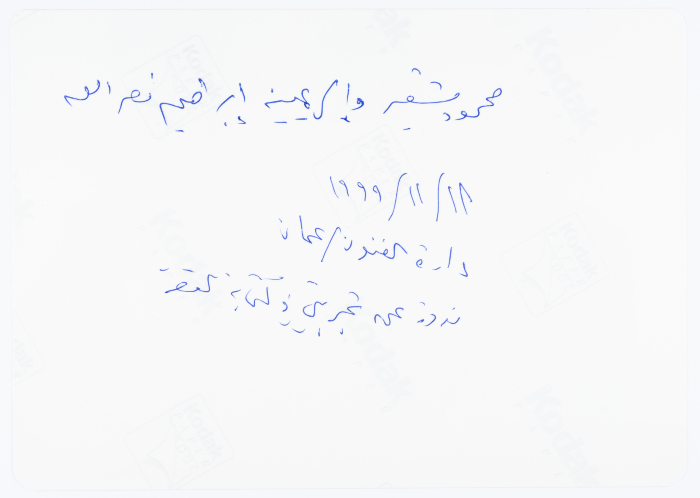 محمود شقير وإلى يمينه إبراهيم نصر الله
١٩٩٩/١١/٢٨
دارة الفنون/عمان
ندوة عن تجربتي في كتابة القصة
Kodak